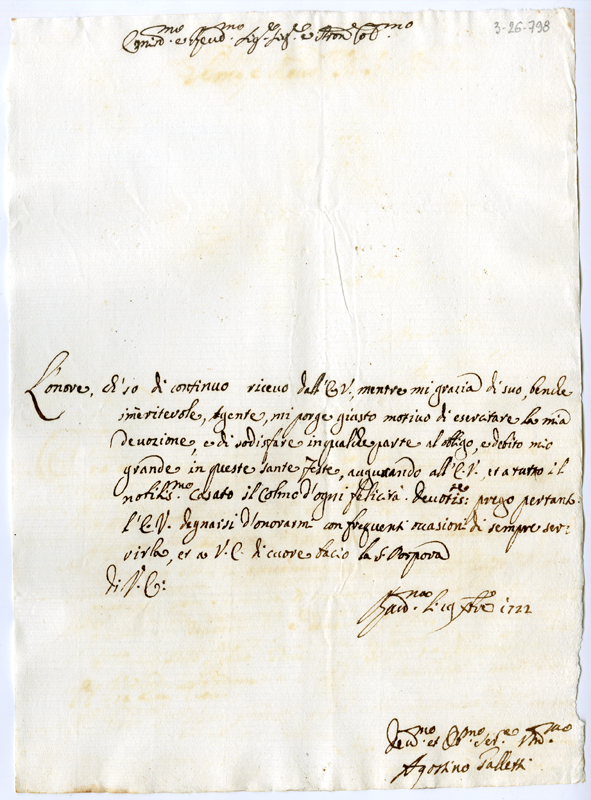 3-26-798
L'onore, ch'io di continuo ricevo dall'E.V., mentre mi grazia di suo, benche
immeritevole, Agente, mi porge giusto motivo di esercitare la mia
devozione, e di sodisfare in qualche parte al obligo, e debito mio
grande in queste sante feste, augurando all'E.V., et a tutto il
nobiliss.mo Casato il Colmo d'ogni felicità. prego pertanto
l'E.V. degnarsi d'onorarmi con frequenti occasioni di sempre ser-
virla, et a V.E. di cuore bacio la S. Porpora
Di V.E:
li 19 Xbre 1722
Agostino Galletti